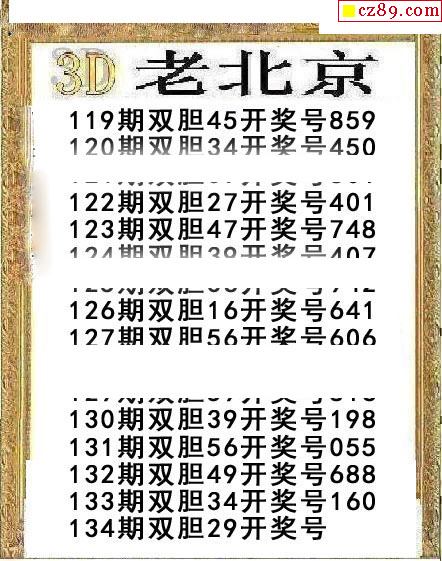 cz89.com
3D 老北京
119期双胆45开奖号859
120期双胆34开奖号450
122期双胆27开奖号401
123期双胆47开奖号748
124期双胆39开奖号407
126期双胆16开奖号641
127期双胆56开奖号606
130期双胆39开奖号198
131期双胆56开奖号055
132期双胆49开奖号688
133期双胆34开奖号160
134期双胆29开奖号